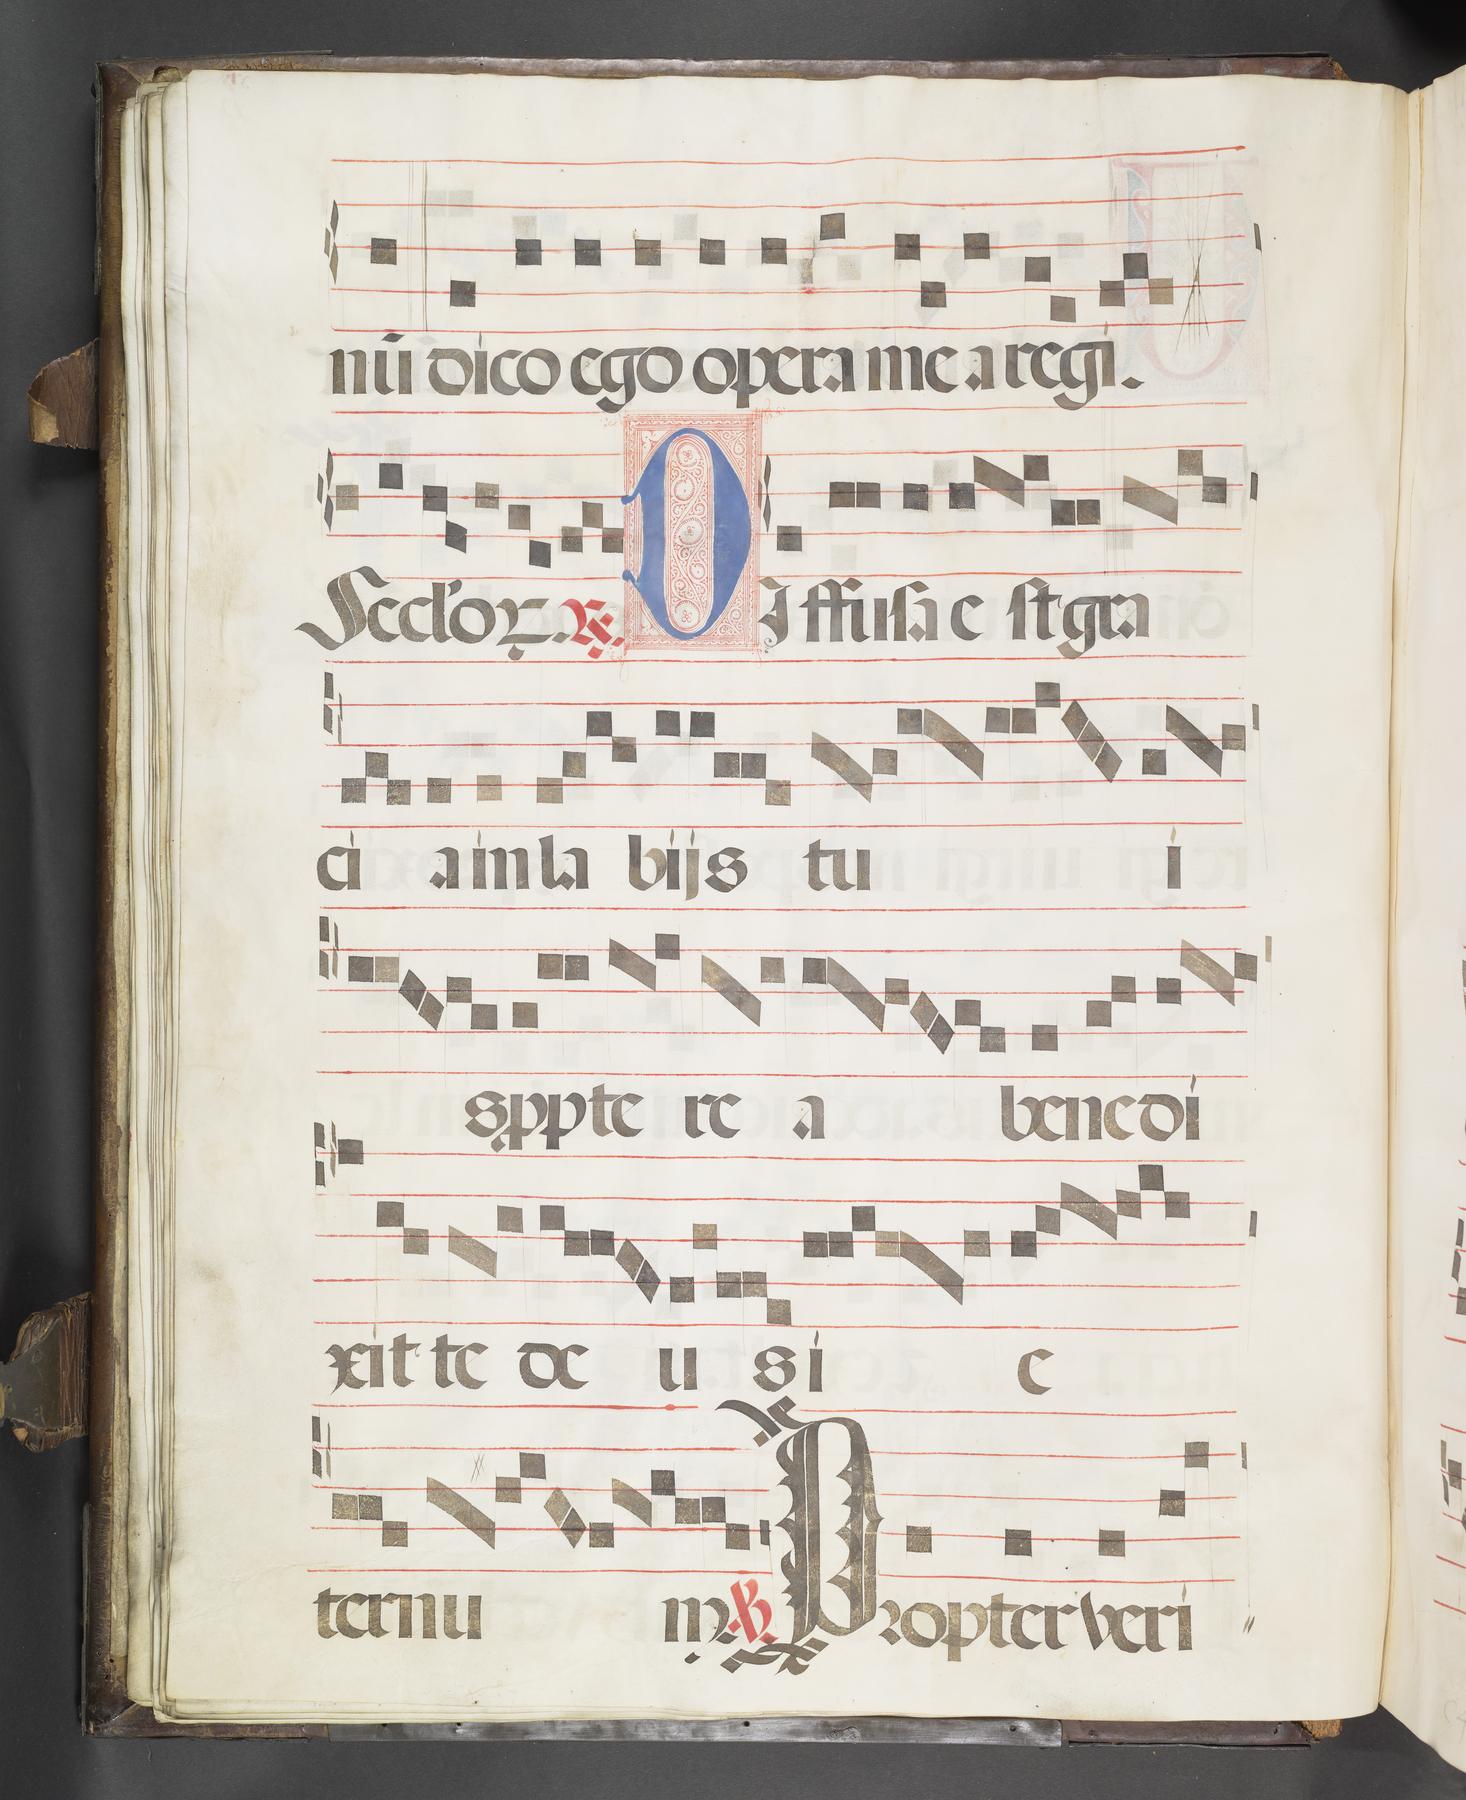 nū dico ego opera mea regi.
Seclor. ℟. DIffusa est gra
cia in la bijs tu i
s ppte re a benedi
xit te de us i e
ternu m. ℣. Propter veri